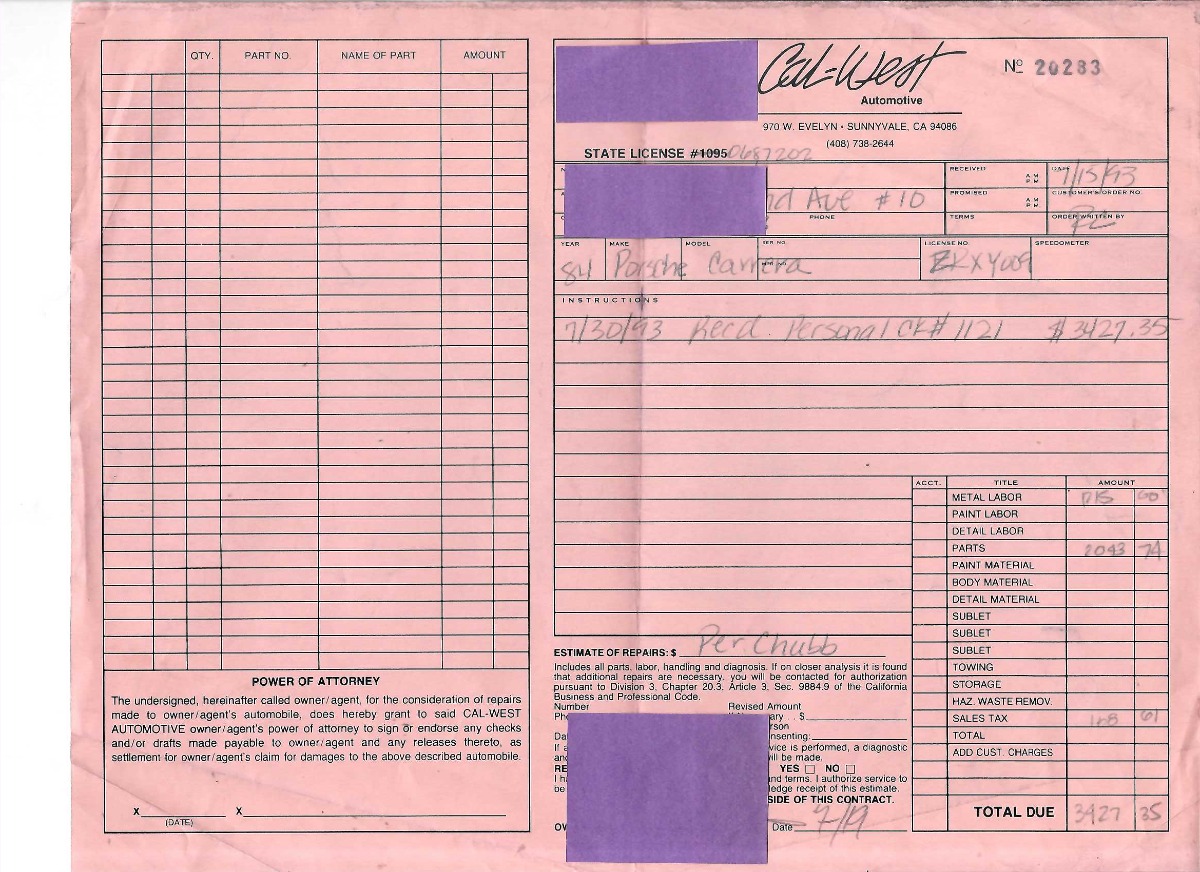 QTY. PART NO. NAME OF PART AMOUNT
POWER OF ATTORNEY
The undersigned, hereinafter called owner/agent, for the consideration of repairs
made to owner/agent's automobile, does hereby grant to said CAL-WEST
AUTOMOTIVE owner/agent's power of attorney to sign or endorse any checks
and/or drafts made payable to owner/agent and any releases thereto, as
settlement for owner/agent's claim for damages to the above described automobile.
X X
(DATE)
Cal-West
Automotive
Nº 20283
970 W. EVELYN • SUNNYVALE, CA 94086
(408) 738-2644
STATE LICENSE #1095 0687202
RECEIVED A.M. P.M. DATE 7/15/93
Ave #10 PROMISED A.M. P.M. CUSTOMER'S ORDER NO.
PHONE TERMS ORDER WRITTEN BY
YEAR MAKE MODEL SER. NO. LICENSE NO. SPEEDOMETER
84 Porsche Carrera
INSTRUCTIONS
7/30/93 Rec'd. Personal CK# 1121 $3427.35
ACCT. TITLE AMOUNT
METAL LABOR
PAINT LABOR
DETAIL LABOR
PARTS 2043 74
PAINT MATERIAL
BODY MATERIAL
DETAIL MATERIAL
SUBLET
SUBLET
SUBLET
TOWING
STORAGE
HAZ. WASTE REMOV.
SALES TAX 168 61
TOTAL
ADD CUST. CHARGES
TOTAL DUE 3427 35
ESTIMATE OF REPAIRS: $ Per Chubb
Includes all parts, labor, handling and diagnosis. If on closer analysis it is found
that additional repairs are necessary, you will be contacted for authorization
pursuant to Division 3, Chapter 20.3, Article 3, Sec. 9884.9 of the California
Business and Professional Code.
Number Revised Amount
$
vice is performed, a diagnostic
will be made.
YES NO
and terms. I authorize service to
be ledge receipt of this estimate.
SIDE OF THIS CONTRACT.
Date 7/19